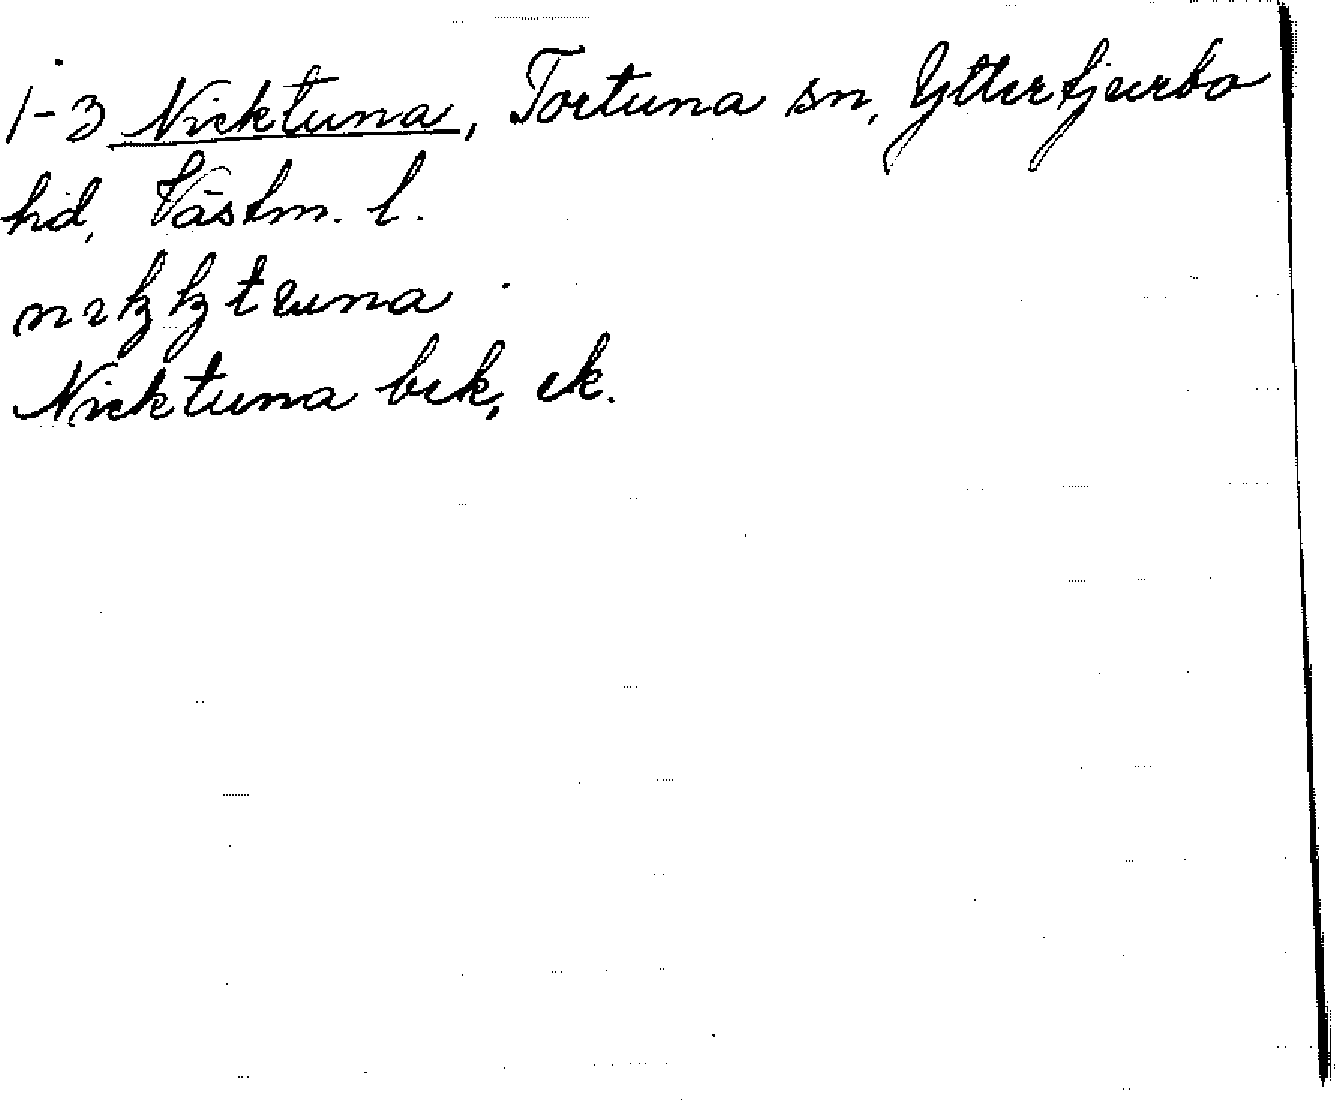 1-3 Nicktuna, Tortuna sn, Yttertjurbo
hd, Västm. l.
Nicktuna bek, ek.